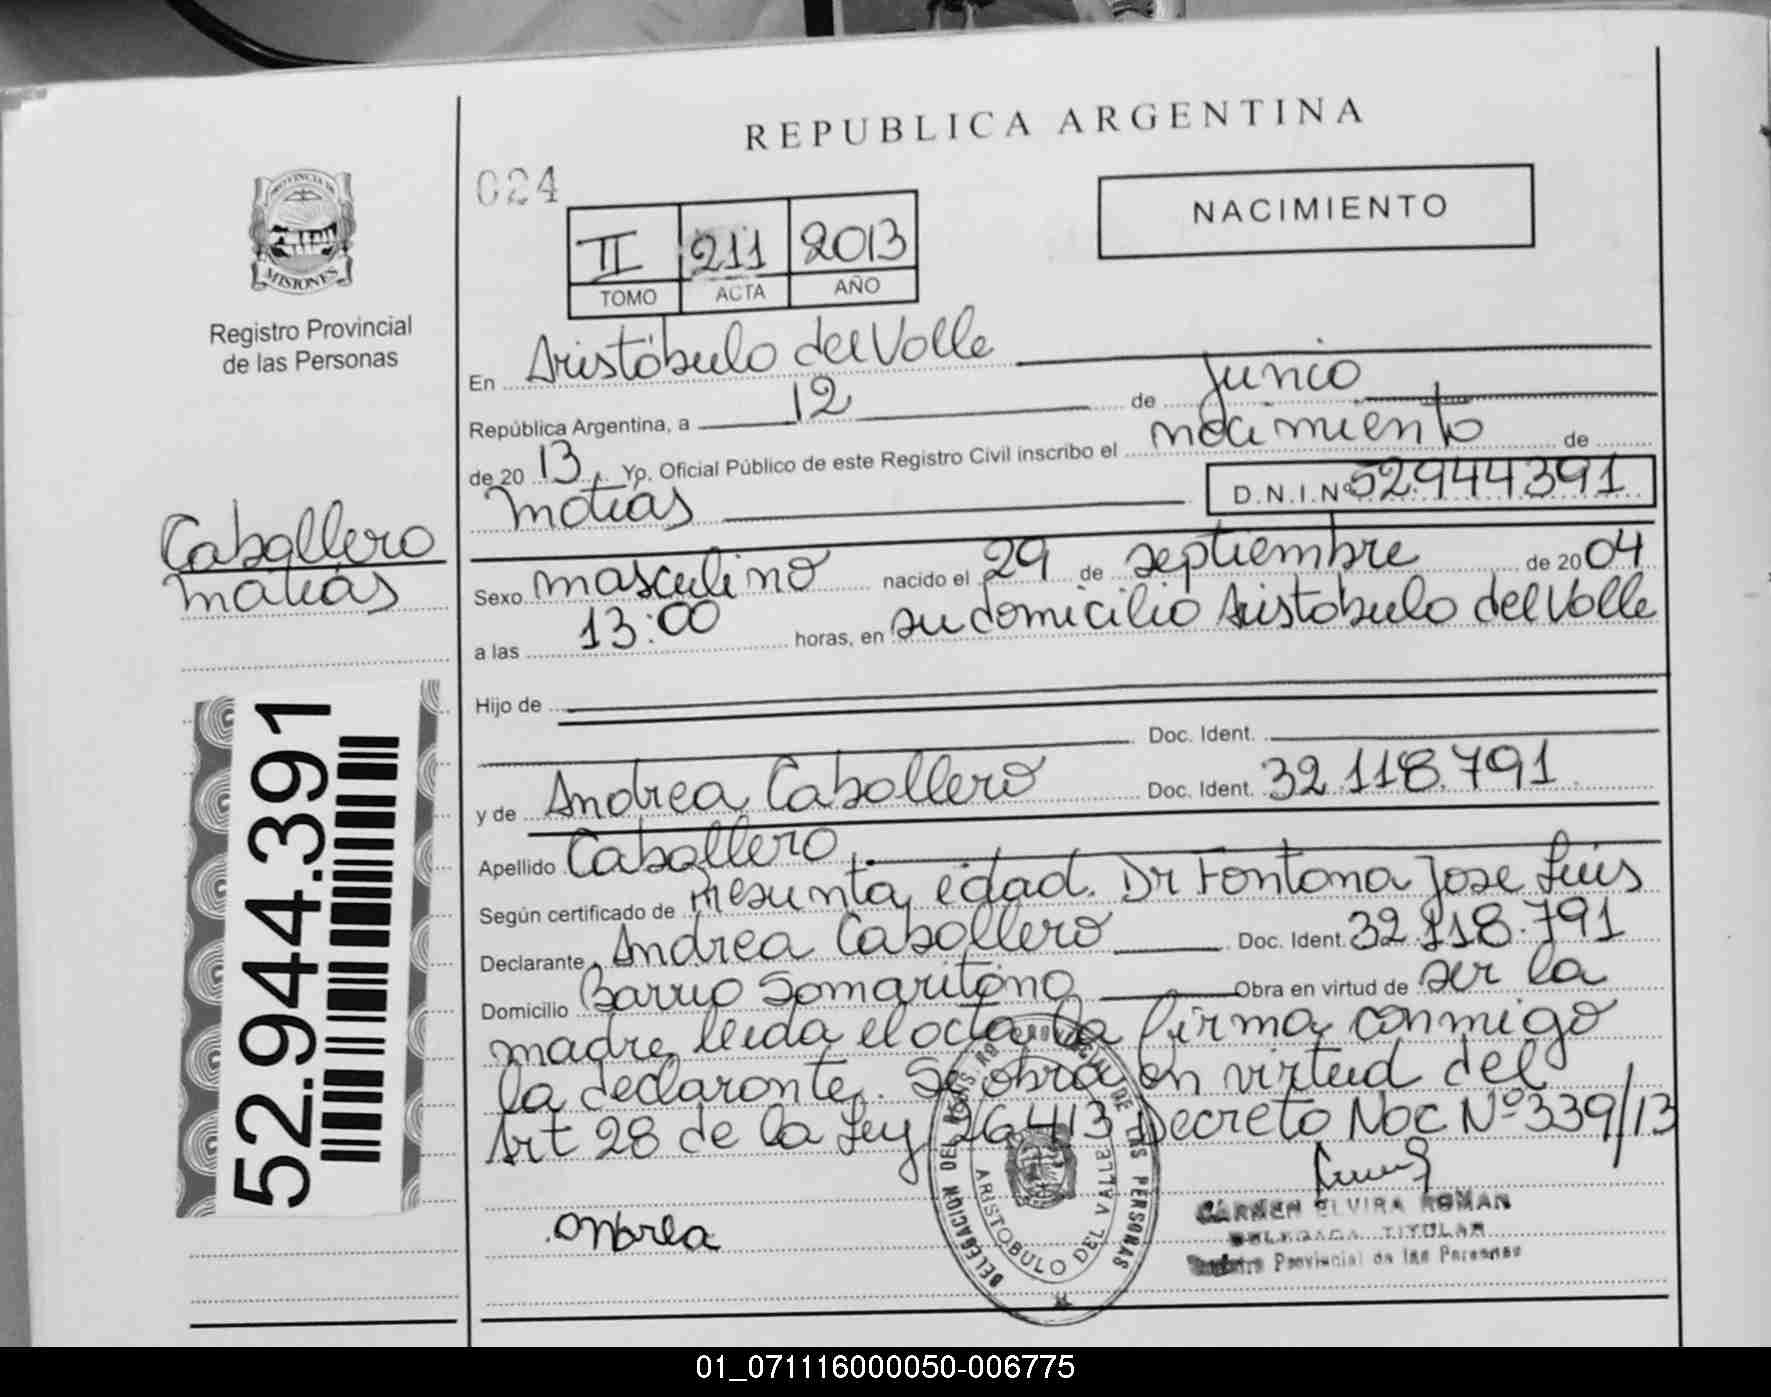 REPUBLICA ARGENTINA
024
NACIMIENTO
II 211 2013
TOMO ACTA AÑO
PROVINCIA DE
MISIONES
Registro Provincial
de las Personas
En Aristóbulo del Valle
República Argentina, a 12 de junio
de 2013, Yo, Oficial Público de este Registro Civil inscribo el nacimiento de
Matías D.N.I.Nº 52.944.391
Caballero
Matías
Sexo masculino nacido el 29 de septiembre de 2004
a las 13:00 horas, en su domicilio Aristobulo del Valle
Hijo de
Doc. Ident.
y de Andrea Caballero Doc. Ident. 32.118.791
Apellido Caballero
Según certificado de presunta edad. Dr Fontana Jose Luis
Declarante Andrea Caballero Doc. Ident. 32.118.791
Domicilio Barrio Samaritano Obra en virtud de ser la
madre, leida el acta la firma conmigo
la declarante. Se obra en virtud del
Art 28 de la Ley 26413 Decreto Nac Nº 339/13
Andrea
DELEGACION DEL REGIS. PROVINCIAL DE LAS PERSONAS
ARISTOBULO DEL VALLE
CARMEN ELVIRA ROMAN
DELEGADA TITULAR
Registro Provincial de las Personas
52.944.391
01_071116000050-006775